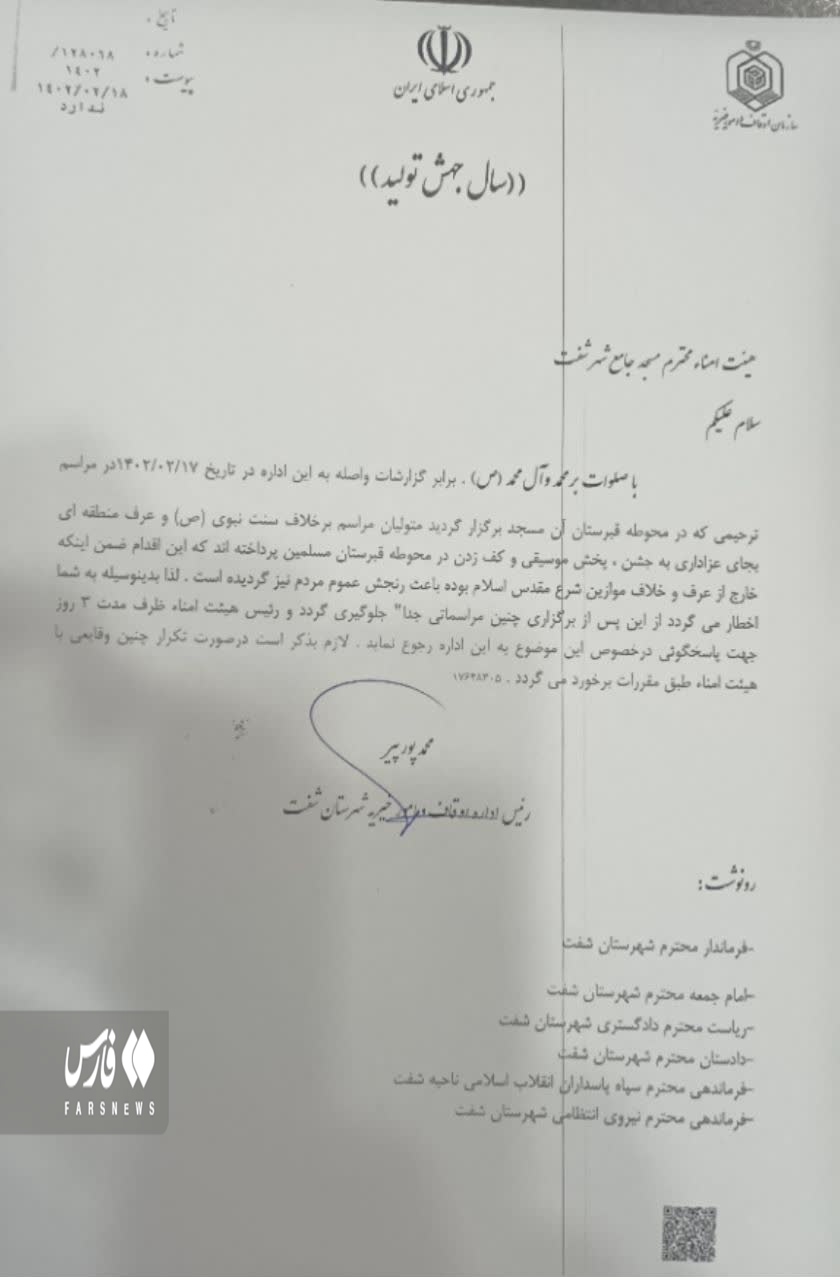 تاریخ :
شماره :
پیوست :
/۱۲۸۰۶۸
۱۴۰۲
۱۴۰۲/۰۲/۱۸
ندارد
جمهوری اسلامی ایران
سازمان اوقاف و امور خیریه
((سال جهش تولید))
هیئت امناء محترم مسجد جامع شهر شفت
سلام علیکم
با صلوات بر محمد وآل محمد (ص) . برابر گزارشات واصله به این اداره در تاریخ ۱۴۰۲/۰۲/۱۷در مراسم
ترحیمی که در محوطه قبرستان آن مسجد برگزار گردید متولیان مراسم برخلاف سنت نبوی (ص) و عرف منطقه ای
بجای عزاداری به جشن ، پخش موسیقی و کف زدن در محوطه قبرستان مسلمین پرداخته اند که این اقدام ضمن اینکه
خارج از عرف و خلاف موازین شرع مقدس اسلام بوده باعث رنجش عموم مردم نیز گردیده است . لذا بدینوسیله به شما
اخطار می گردد از این پس از برگزاری چنین مراسماتی جدا" جلوگیری گردد و رئیس هیئت امناء ظرف مدت ۳ روز
جهت پاسخگوئی درخصوص این موضوع به این اداره رجوع نماید . لازم بذکر است درصورت تکرار چنین وقایعی با
هیئت امناء طبق مقررات برخورد می گردد . ۱۷۶۴۸۳۰۵
محمد پور پیر
رئیس اداره اوقاف و امور خیریه شهرستان شفت
رونوشت :
-فرماندار محترم شهرستان شفت
-امام جمعه محترم شهرستان شفت
-ریاست محترم دادگستری شهرستان شفت
-دادستان محترم شهرستان شفت
-فرماندهی محترم سپاه پاسداران انقلاب اسلامی ناحیه شفت
-فرماندهی محترم نیروی انتظامی شهرستان شفت
فارس
FARSNEWS